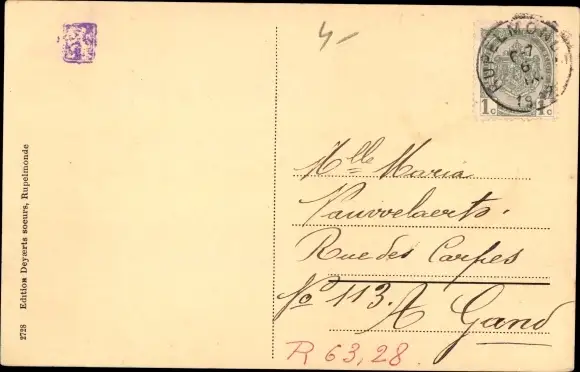 4-
RUPELMONDE
1c 1c
Mlle Maria
Pauwelaerts.
Rue des Carpes
No 113. A Gand
R 63,28
2728 Edition Deyaerts soeurs, Rupelmonde